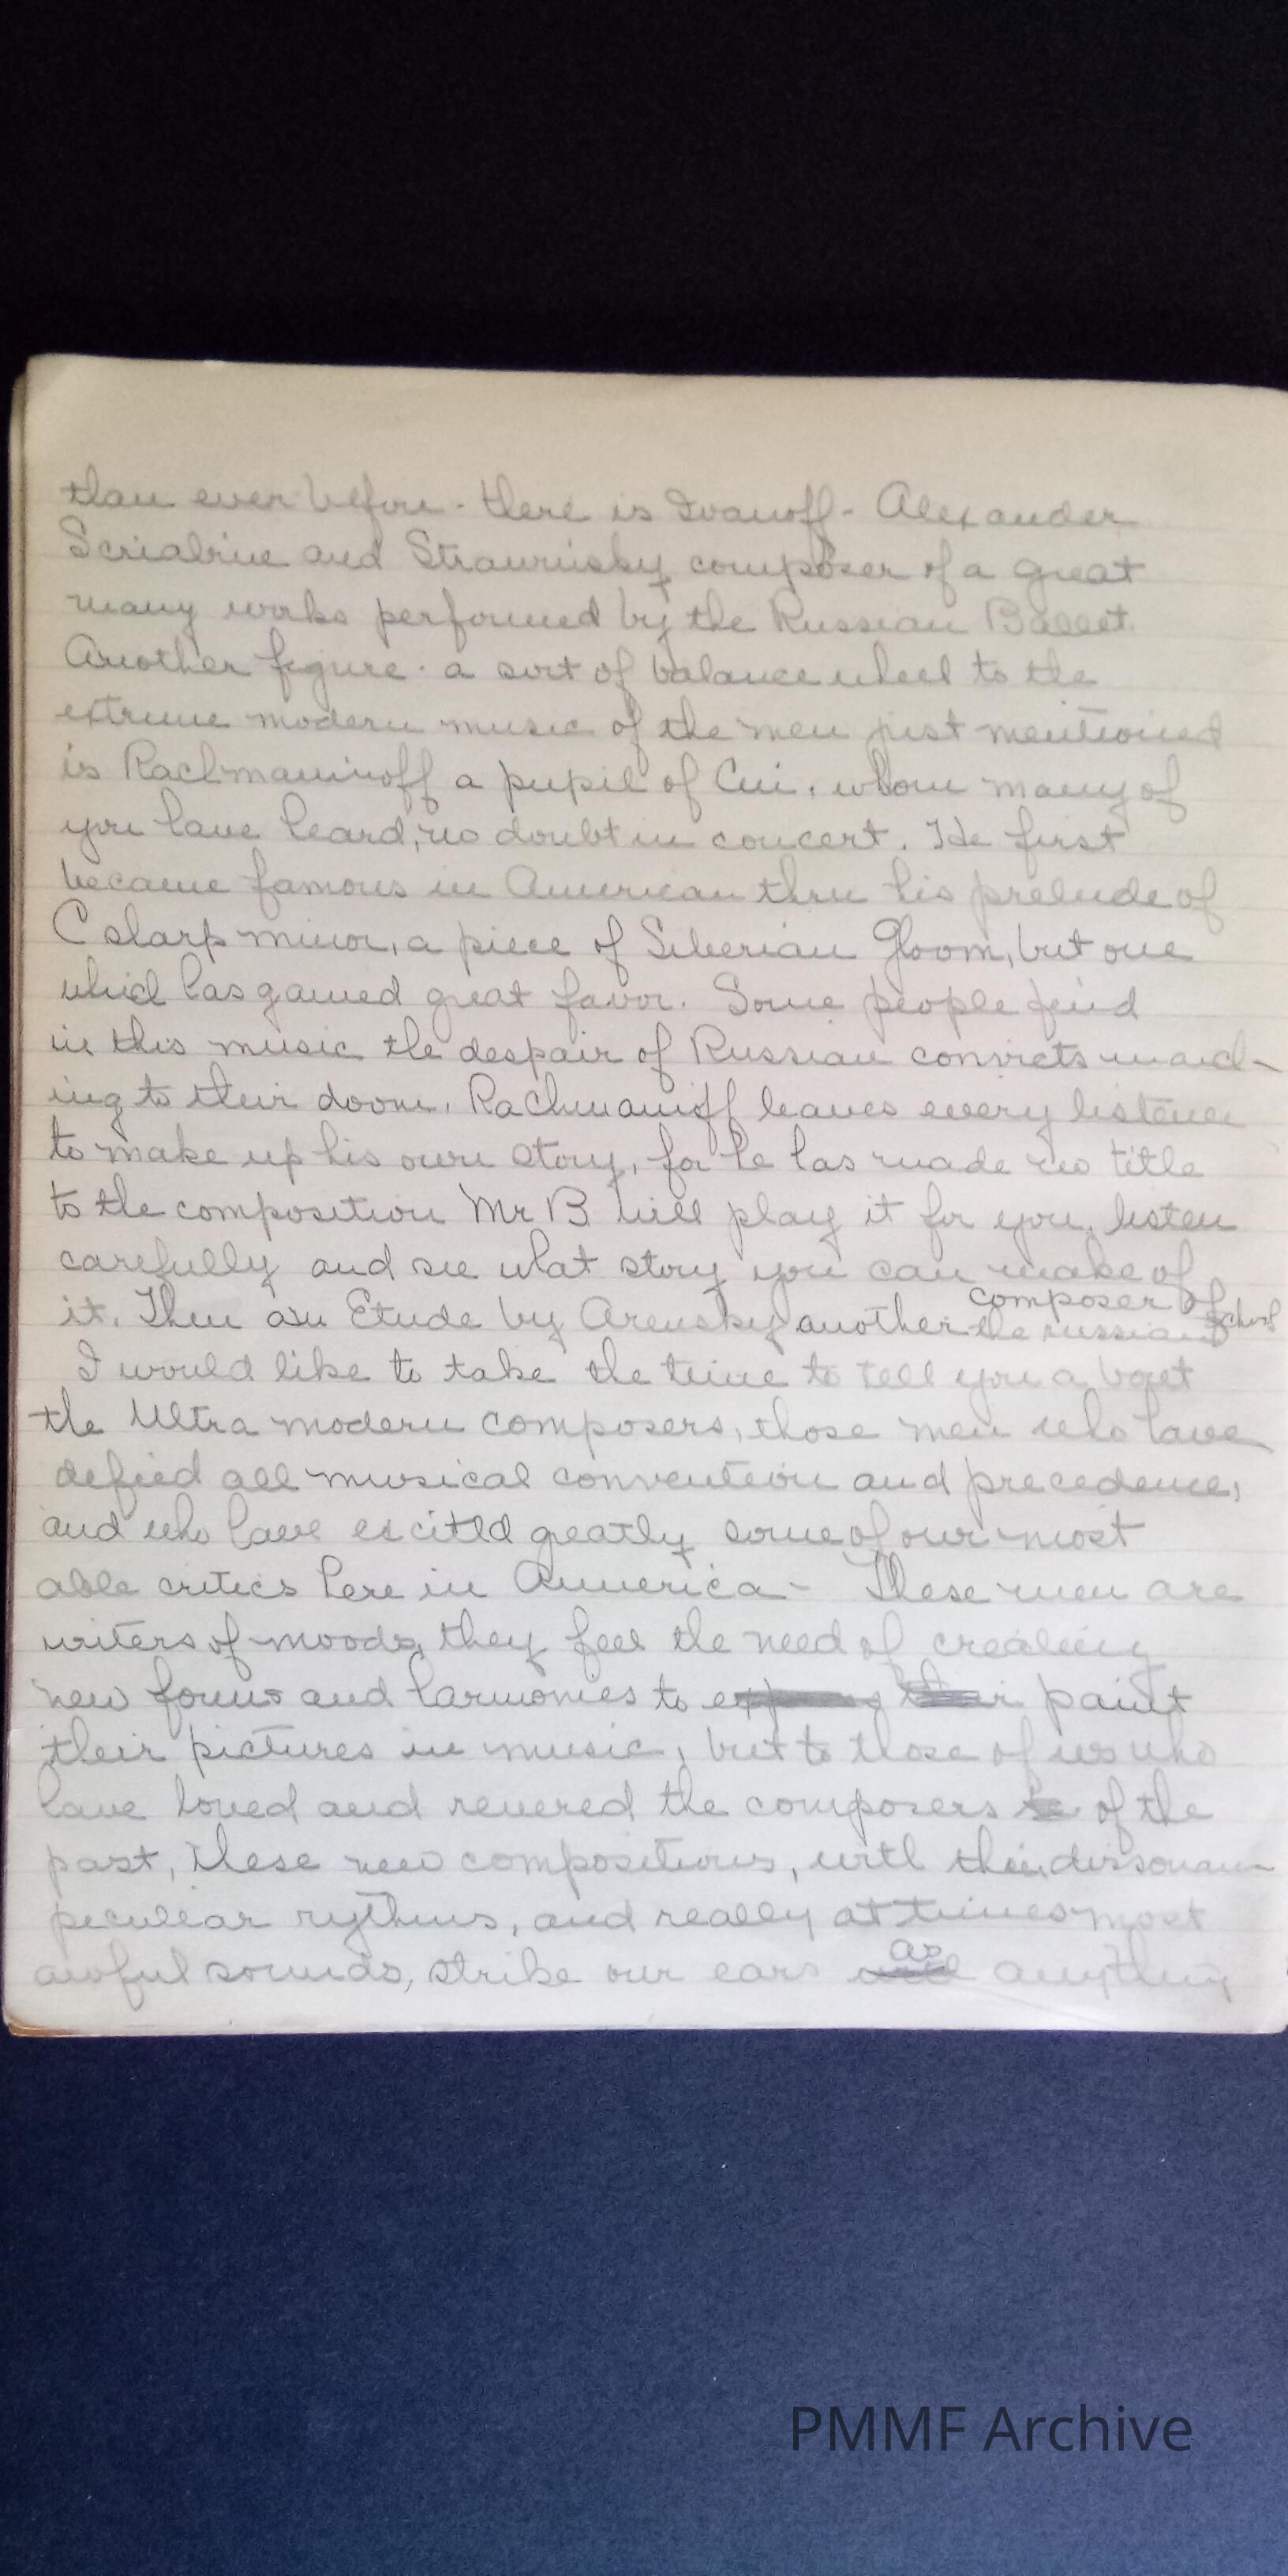 than ever before - there is Ivanoff - Alexander
Scriabine and Strawinsky composer of a great
many works performed by the Russian Ballet.
Another figure - a sort of balance wheel to the
extreme modern music of the men just mentioned
is Rachmaninoff a pupil of Cui, whom many of
you have heard, no doubt in concert. He first
became famous in American thru his prelude of
C sharp minor, a piece of Siberian Gloom, but one
which has gained great favor. Some people find
in this music the despair of Russian convicts march-
ing to their doom. Rachmanoff leaves every listener
to make up his own story, for he has made no title
to the composition Mr B will play it for you, listen
carefully and see what story you can make of
it. Then an Etude by Arensky another composer of the russian school
I would like to take the time to tell you about
the Ultra modern composers, those men who have
defied all musical convention and precedence,
and who have excited greatly some of our most
able critics here in America - These men are
writers of moods, they feel the need of creating
new forms and harmonies to paint
their pictures in music, but to those of us who
have loved and revered the composers of the
past, these new compositions, with their dissonan-
peculiar rythms, and really at times most
awful sounds, strike our ears as anything
PMMF Archive